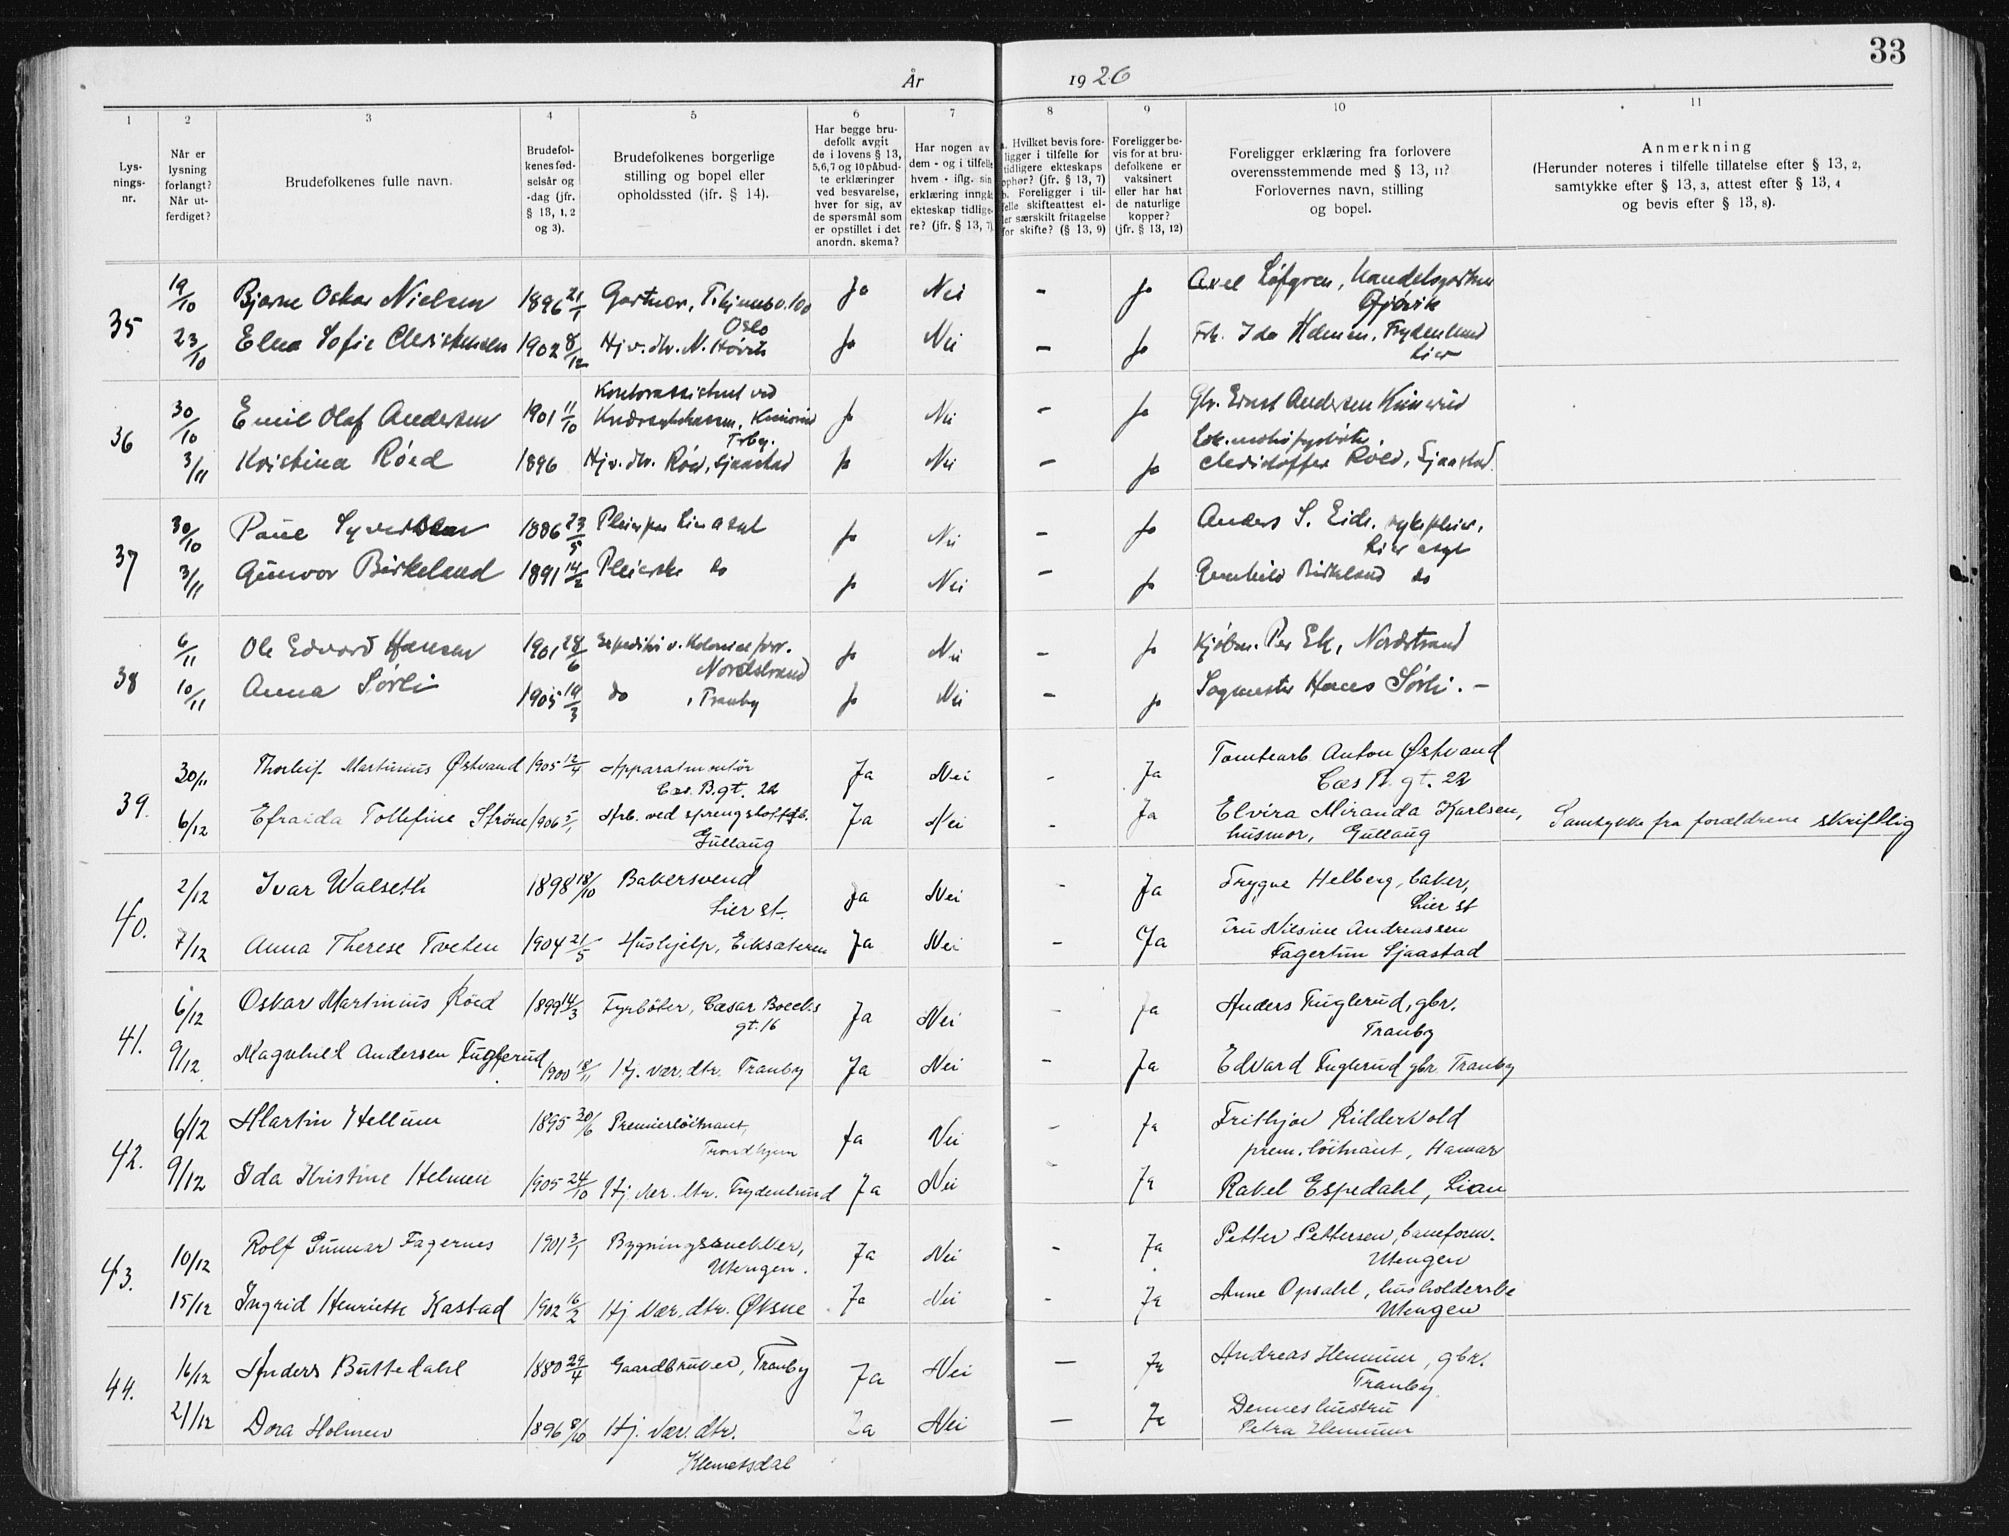 33
År 1926
1 2 3 4 5 6 7 8 9 10 11
Lys-
nings-
nr.
Når er
lysning
forlangt?
Når ut-
ferdiget?
Brudefolkenes fulle navn.
Brudefol-
kenes fød-
selsår og
-dag (jfr.
§ 13, 1, 2
og 3).
Brudefolkenes borgerlige
stilling og bopel eller
opholdssted (jfr. § 14).
Har begge bru-
defolk avgit
de i lovens § 13,
5,6,7 og 10 påbud-
te erklæringer
ved besvarelse,
hver for sig, av
de spørsmål som
er opstillet i det
anordn. skema?
Har nogen av
dem - og i tilfelle
hvem - iflg. sin
erklæring inngåt
ekteskap tidlige-
re? (jfr. § 13, 7)
a. Hvilket bevis fore-
ligger i tilfelle for
tidligere ekteskaps
ophør? (jfr. § 13, 7)
b. Foreligger i til-
felle skifteattest el-
ler særskilt fritagelse
for skifte? (§ 13, 9)
Foreligger be-
vis for at bru-
defolkene er
vaksinert
eller har hat
de naturlige
kopper?
(jfr. § 13, 12)
Foreligger erklæring fra forlovere
overensstemmende med § 13, 11?
Forlovernes navn, stilling
og bopel.
Anmerkning
(Herunder noteres i tilfelle tillatelse efter § 13, 2,
samtykke efter § 13, 3, attest efter § 13, 4
og bevis efter § 13, 8).
35 19/10 Bjarne Oskar Nielsen 1896 21/1 Gartner, 100 Ja Nei - Ja Axel Løfgren, handelsgartner
Oslo Gjøvik
23/10 Elna Sofie Christensen 1902 8/12 Hjv. dtr. N. Høvik Ja Nei - Ja Frk. Ida Helmen, Frydenlund
Lier
36 30/10 Emil Olaf Andersen 1901 11/10 Kontorassistent ved Ja Nei - Ja Gbr. Ernst Andersen Kinnerud
Trby.
3/11 Kristina Röed 1896 Hjv. dtr. Röed, Sjaastad Ja Nei - Ja Lokomotivfyrbøter
Christoffer Röed, Sjaastad.
37 30/10 Paul Syvertsen 1886 23/5 Pleier paa Lier asyl Ja Nei - Ja Anders S. Eide, sykepleier,
Lier asyl
3/11 Gunvor Birkeland 1891 14/2 Pleierske do Ja Nei - Ja Gunhild Birkeland do
38 6/11 Ole Edvard Hansen 1901 28/6 Expeditør v. Kolonialforr. Ja Nei - Ja Kjøbm. Per Ek, Nordstrand
Nordstrand
10/11 Anna Sørli 1905 19/3 do , Tranby Ja Nei - Ja Sagmester Hans Sørli. -
39. 30/11 Thorleif Martinius Østvand 1905 12/4 Apparatmontør Ja Nei - Ja Tomtearb Anton Østvand
Cæs. B. gt. 22 Cæs B. gt. 22
6/12 Efraida Tollefine Strøm 1906 5/1 Arb. ved sprengstoffab. Ja Nei - Ja Elvira Miranda Karlsen, Samtykke fra forældrene skriftlig
Gullaug husmor, Gullaug
40. 2/12 Ivar Walseth 1898 18/10 Bakersvend Ja Nei - Ja Trygve Helberg, baker,
Lier st. Lier st
7/12 Anna Therese Tveten 1904 21/5 Hushjelp, Eiksæteren Ja Nei - Ja Fru Nilsine Andreassen
Fagertun Sjaastad
41. 6/12 Oskar Martinius Röed 1899 14/3 Fyrböter, Cæsar Boecks Ja Nei - Ja Anders Fuglerud, gbr.
gt. 16 Tranby
9/12 Magnhild Andersen Fuglerud 1900 18/11 Hj. vær. dtr. Tranby Ja Nei - Ja Edvard Fuglerud gbr Tranby
42. 6/12 Martin Hellum 1895 30/6 Premierlöitnant, Ja Nei - Ja Frithjov Riddervold
Trondhjem prem. löitnant, Hamar
9/12 Ida Kristine Helmen 1905 24/10 Hj. vær. dtr. Frydenlund Ja Nei - Ja Rakel Espedahl, Lian
43. 10/12 Rolf Gunnar Fagernes 1901 3/1 Bygningssnekker, Ja Nei - Ja Petter Pettersen, baneform.
Utengen. Utengen
15/12 Ingrid Henriette Kastad 1902 16/2 Hj vær. dtr. Øksne Ja Nei - Ja Anne Opsahl, husholderske
Utengen
44. 16/12 Anders Buttedahl 1880 29/4 Gaardbruker, Tranby Ja Nei - Ja Andreas Hennum, gbr.
Tranby
21/12 Dora Holmen 1896 8/10 Hj. vær. dtr. Ja Nei - Ja Dennes hustru
Klemetsdal Petra Hennum